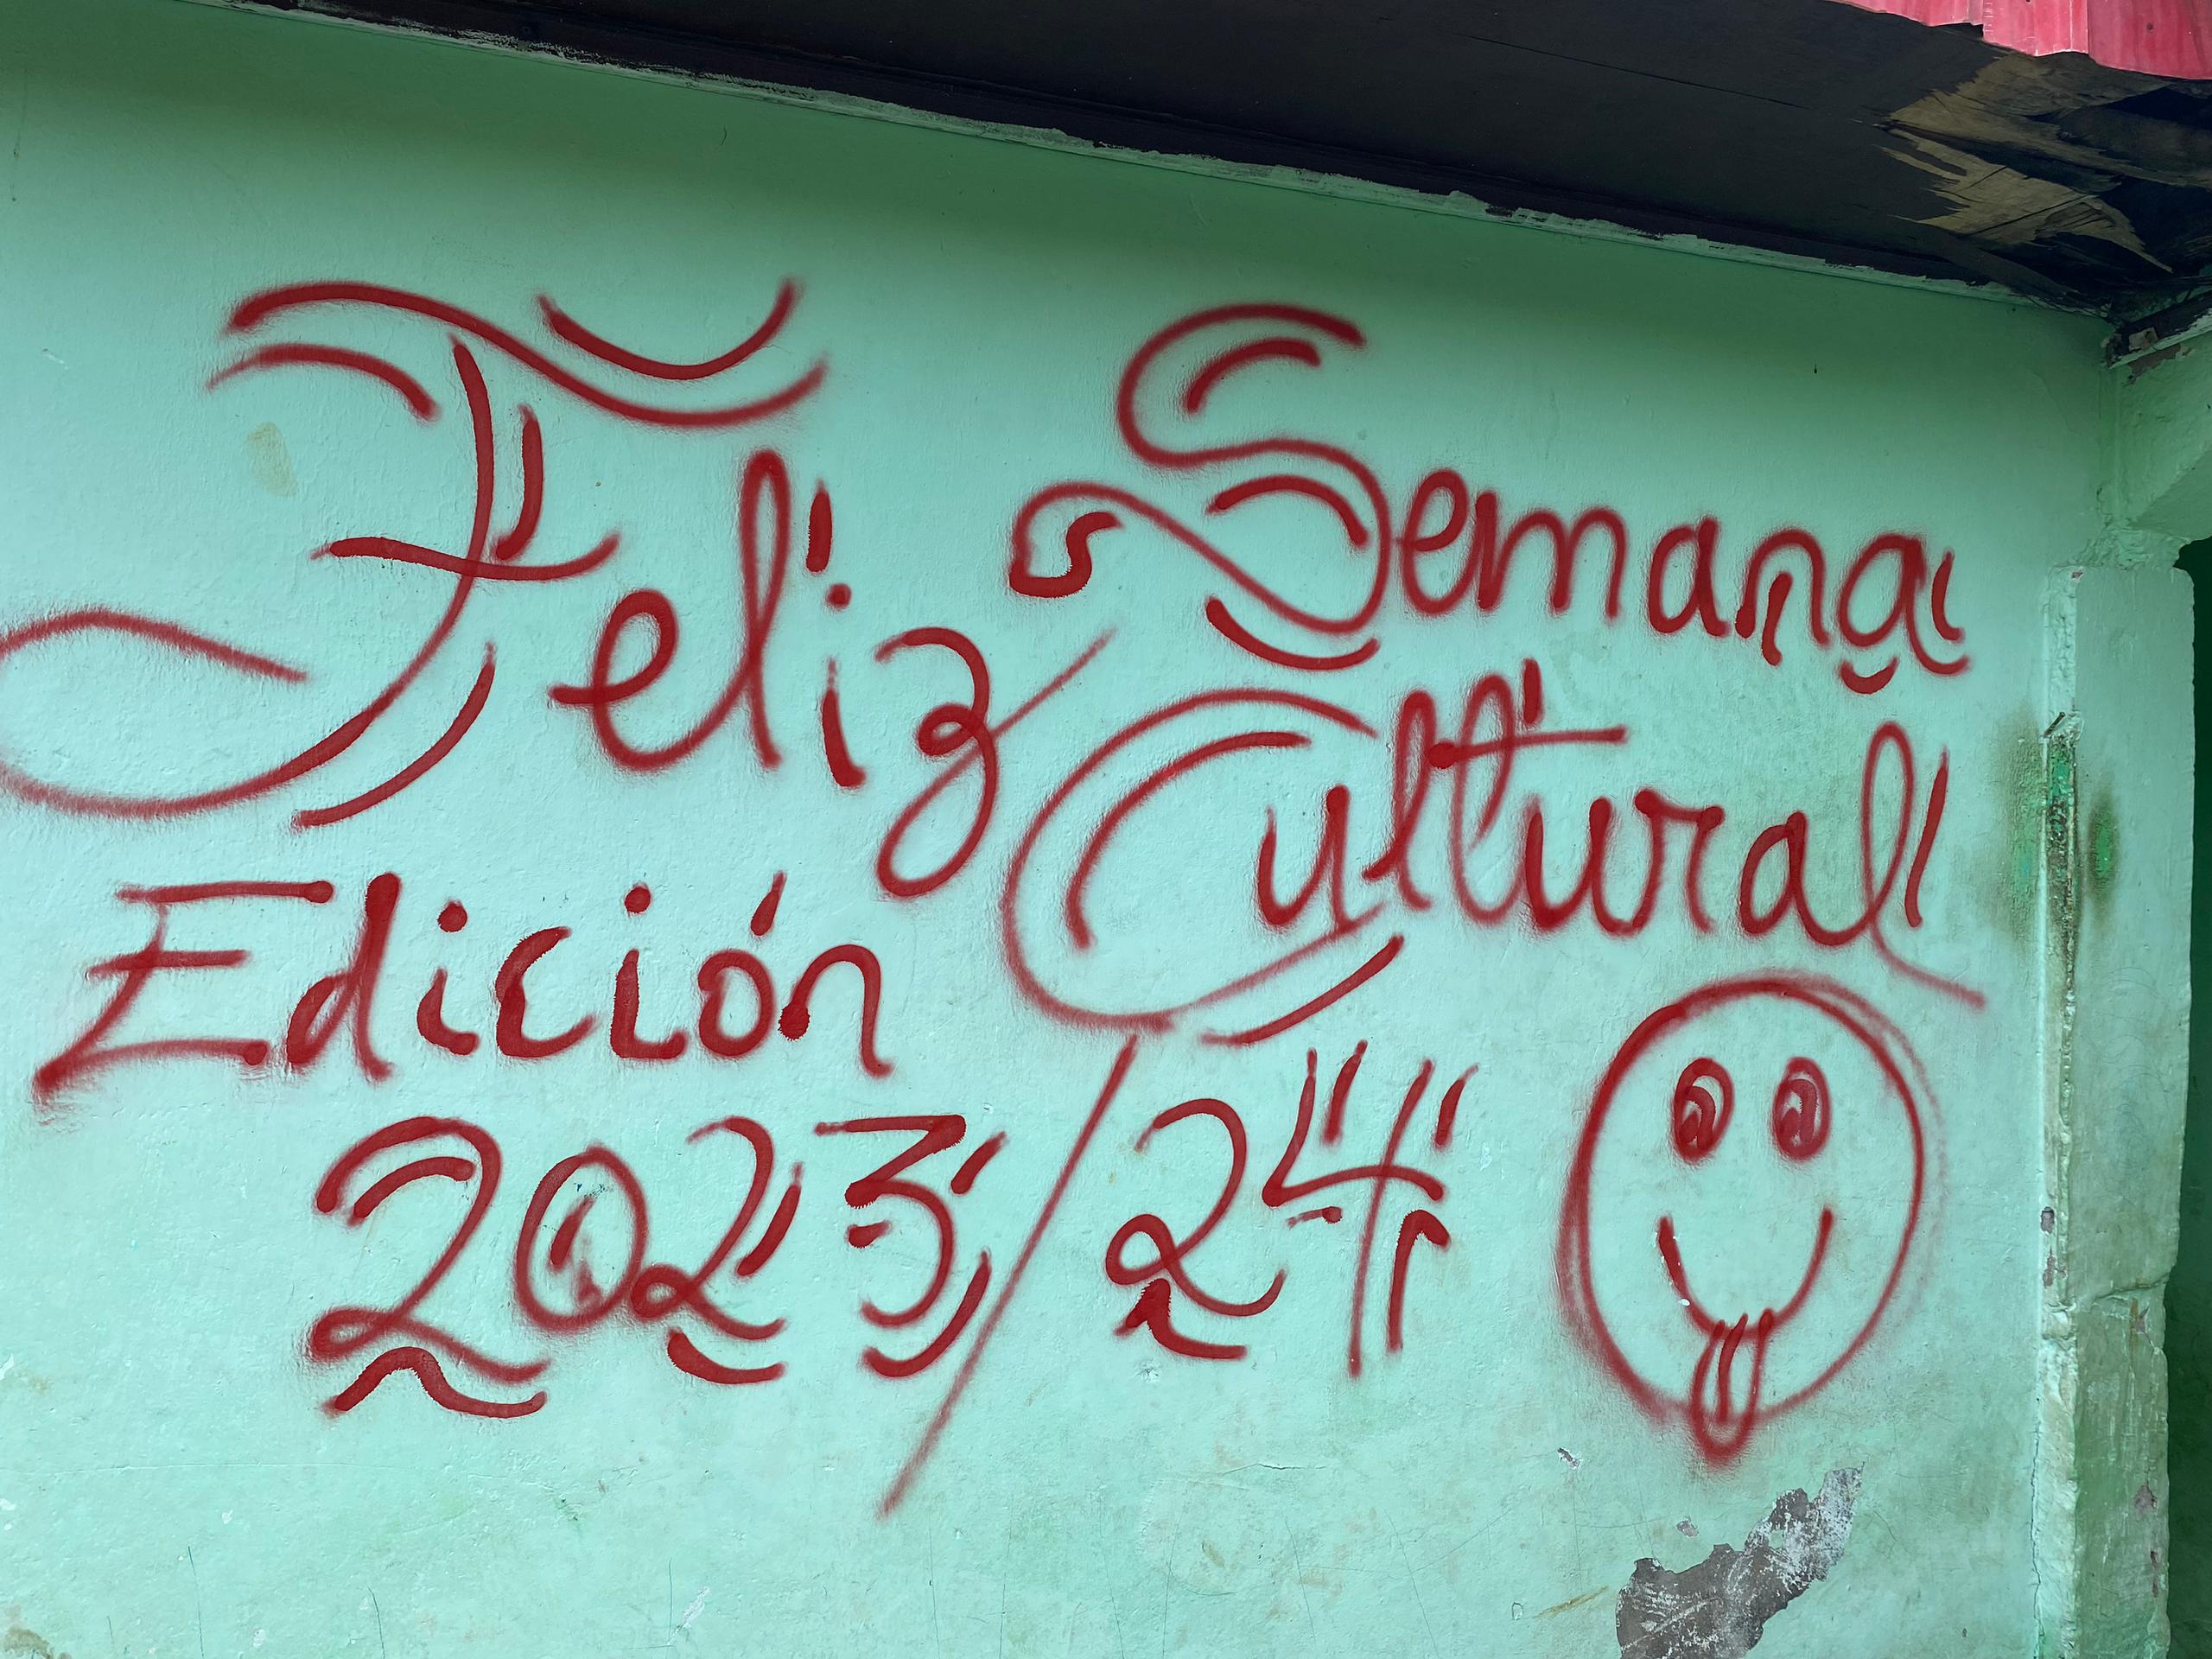 Feliz Semana
Cultural
Edición
2023/24